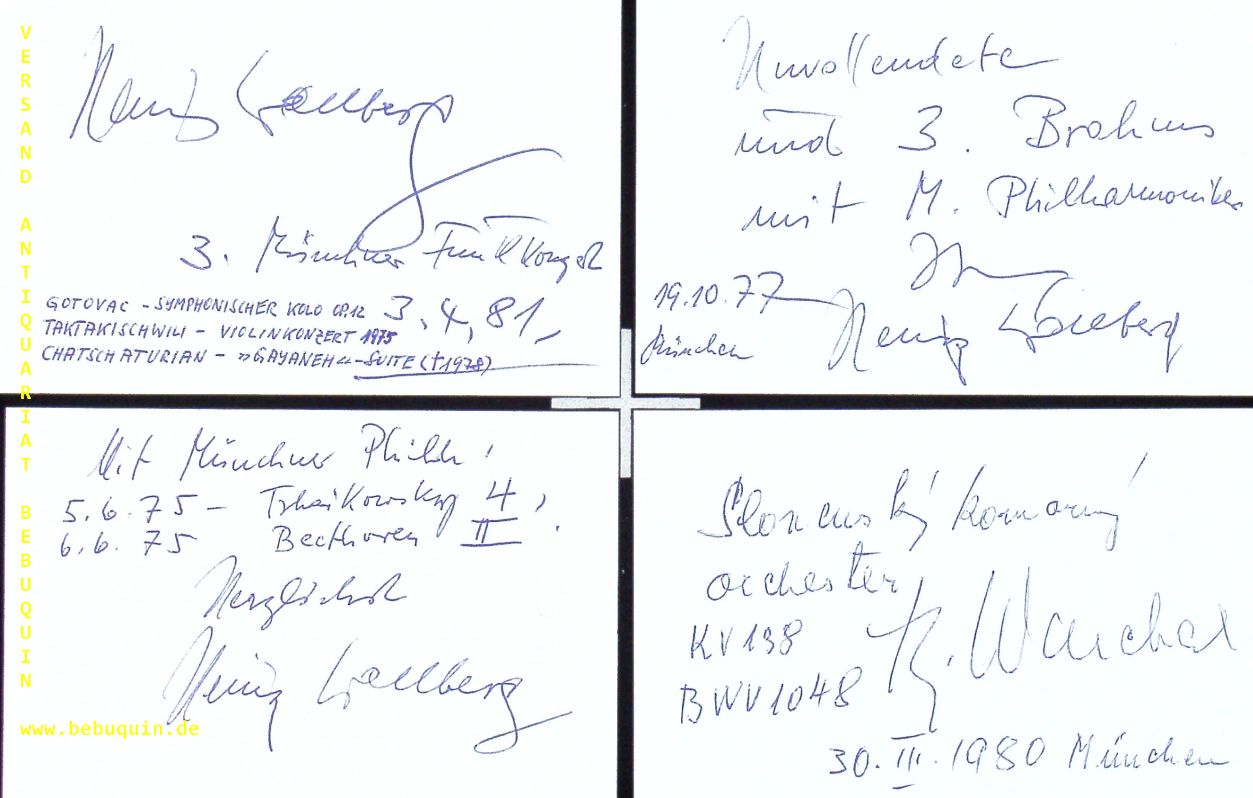 Heinz Wallberg
3. Münchner Funkkonzert
GOTOVAC - SYMPHONISCHER KOLO OP.12
3.4.81,
TAKTAKISCHWILI - VIOLINKONZERT 1975
CHATSCHATURIAN - »GAYANEH«-SUITE (†1978)
Unvollendete
und 3. Brahms
mit M. Philharmoniker
Ihr
19.10.77
Heinz Wallberg
München
Mit Münchner Philh.
5.6.75 - Tschaikowsky 4,
6.6.75 Beethoven II.
Herzlichst
Heinz Wallberg
Slovenský komorný
orchester
KV 138
B. Warchal
BWV 1048
30.III.1980 München
VERSAND ANTIQUARIAT BEBUQUIN
www.bebuquin.de